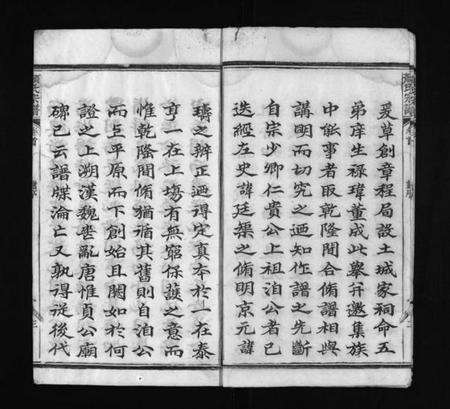 爰草創章程局設土城家祠命五
弟庠生祿瑋董成此舉并邀集族
中能事者取乾隆間合脩譜相與
講明而切究之迺知作譜之先斷
自宗少卿仁貴公上祖洎公者已
迭經左史諱廷榘之脩明京元諱
璹之辨正迺得定真本於一在泰
亨一在上塲有無窮保護之意而
惟乾隆間脩猶循其舊則自洎公
而上平原而下創始且闕如於何
證之上溯漢魏世亂唐惟貞公廟
碑已云譜牒淪亡又孰得從後代